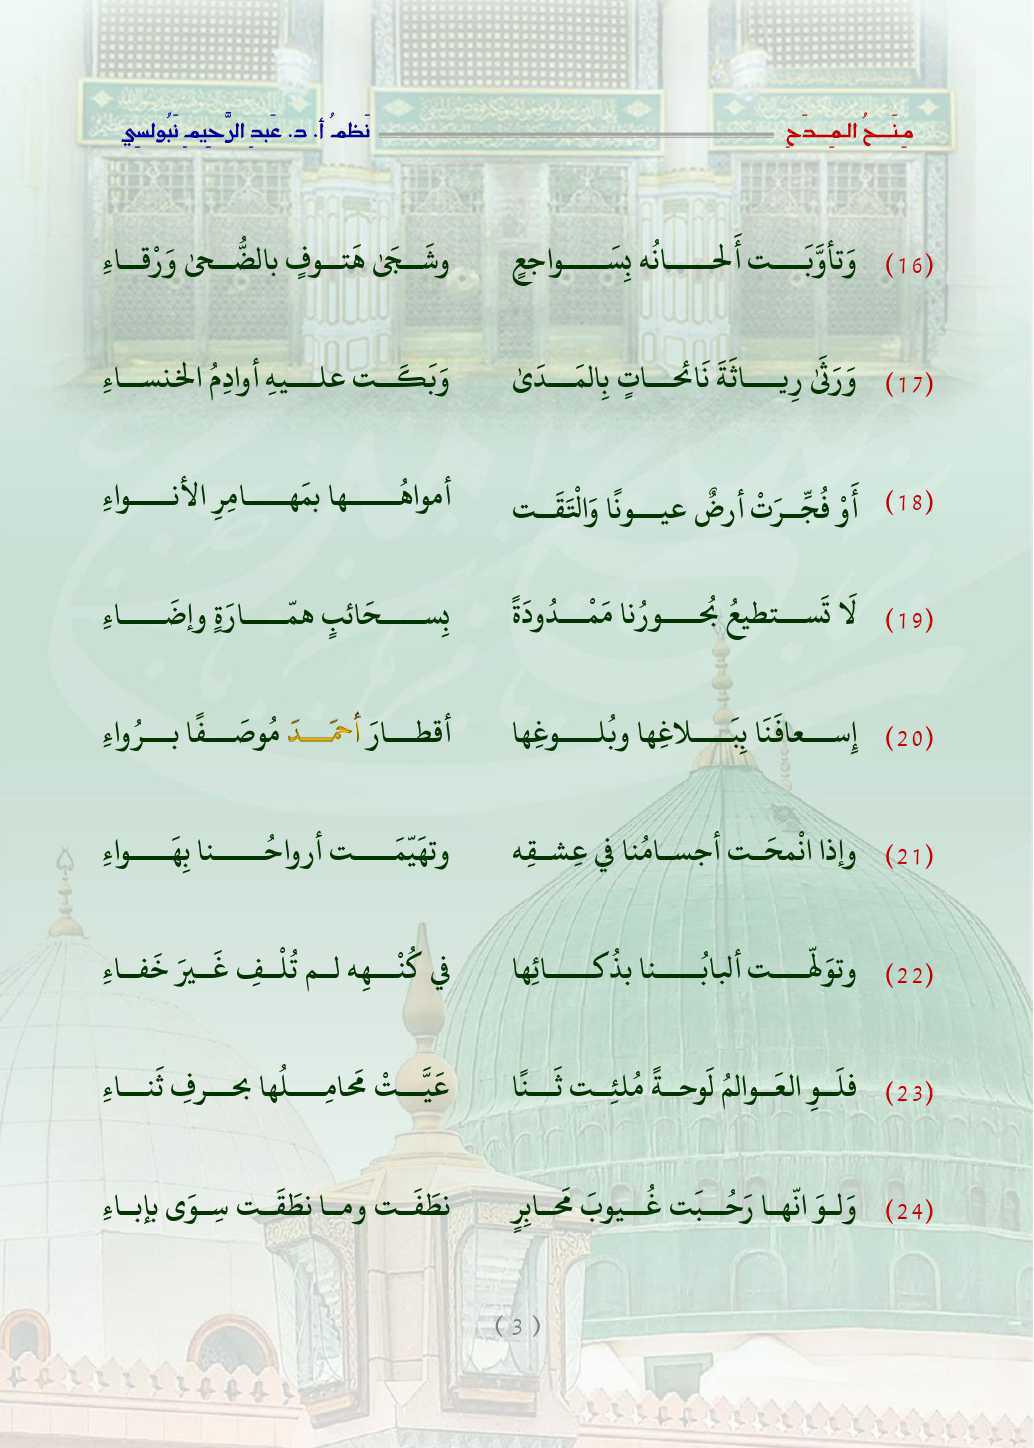 مِنَـحُ المِـدَحِ نَظمُ أ. د. عَبدِ الرَّحيمِ نَبُولسِي
(16) وَتأوَّبَـت أَلحـانُه بِسَـواجعٍ وشَـجَىٰ هَتـوفٍ بالضُّـحىٰ وَرْقـاءِ
(17) وَرَثَىٰ رِيـاثَةَ نَائحـاتٍ بِالمَـدَىٰ وَبَكَـت علـيهِ أوادِمُ الخنسـاءِ
(18) أَوْ فُجِّـرَتْ أرضٌ عيـونًا وَالْتَقَـت أمواهُـها بمَهـامِرِ الأنـواءِ
(19) لَا تَسـتطيعُ بُحـورُنا مَمْـدُودَةً بِسـحَائبٍ همّـارَةٍ وإضَـاءِ
(20) إسـعافَنَا بِبَـلاغِها وبُلـوغِها أقطـارَ أحمَـدَ مُوصَـفًا بـرُواءِ
(21) وإذا انْمحَـت أجسـامُنا في عِشـقِه وتهَيّمَـت أرواحُـنا بِهَـواءِ
(22) وتوَلهّـت ألبابُـنا بذُكـائِها في كُنْـهِه لـم تُلْـفِ غَـيرَ خَفـاءِ
(23) فلَـوِ العَـوالمُ لَوحـةً مُلئِـت ثَـنًا عَيَّـتْ مَحامِـلُها بحـرفِ ثَنـاءِ
(24) وَلـوَ انّهـا رَحُـبَت غُـيوبَ مَحـابِرٍ نطَفَـت ومـا نطَقَـت سِـوَى بإبـاءِ
( 3 )